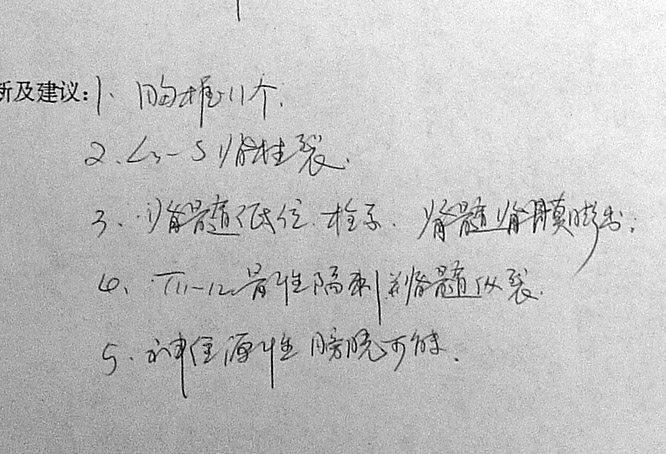 断及建议:1、胸椎11个.
2、L3-S脊柱裂.
3、脊髓低位.栓系.脊髓脊膜膨出;
4、T11-12骨性隔刺并脊髓纵裂.
5、神经源性膀胱可能.